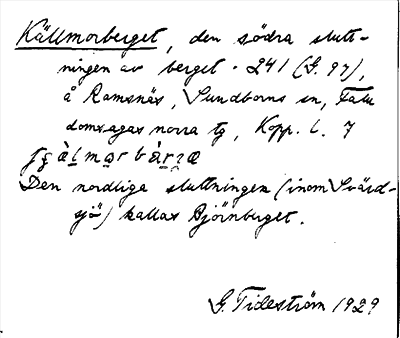 Källmorberget, den södra slutt-
ningen av berget · 241 (G. 97),
å Ramsnäs, Sundborns sn, Falu
domsagas norra tg, Kopp. l. 7
Den nordliga sluttningen (inom Svärd-
sjö) kallas Björnberget.
G. Tideström 1929